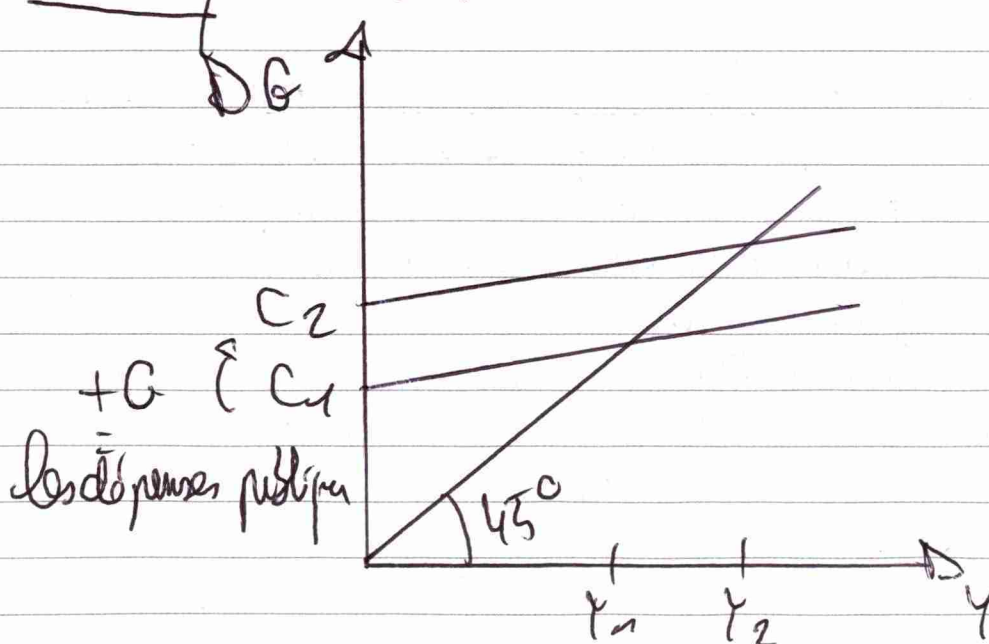 DG
C2
+G C1
=
les dépenses publiques
45°
Y1 Y2 Y